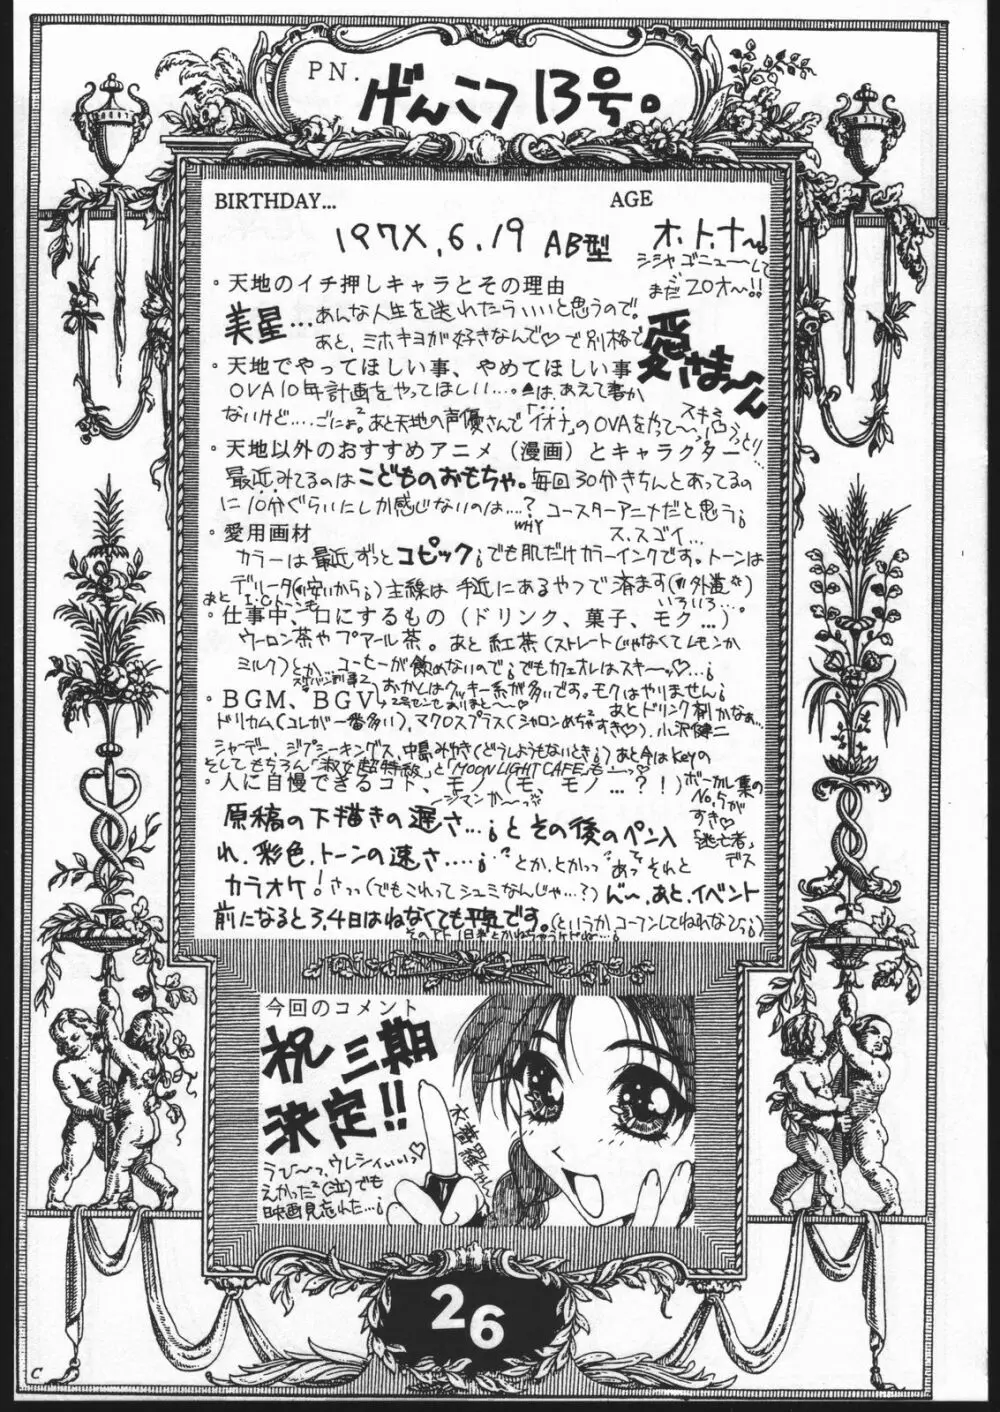 PN. げんこつ13号。
BIRTHDAY... AGE
197X.6.19 AB型 オ、ト、ナ〜!
シシャゴニューして
まだ20才〜!!
・天地のイチ押しキャラとその理由
美星… あんな人生を送れたらいいと思うので。
あと、ミホキヨが好きなんで♡で別格で
愛さま〜ん
・天地でやってほしい事、やめてほしい事
OVA10年計画をやってほしい…。は、あえて書か
ないけど…ごにょ² あと天地の声優さんで「イオナ」のOVAをやって〜
・天地以外のおすすめアニメ（漫画）とキャラクター
最近みてるのはこどものおもちゃ。毎回30分きちんとあってるの
に10分ぐらいにしか感じないのは…? コースターアニメだと思う¡
WHY ス、スゴイ…
・愛用画材
カラーは最近ずっとコピック¡でも肌だけカラーインクです。トーンは
デリータ(安いから¡)主線は手近にあるやつで済ます(外道)
あとI.Cトーンも いろいろ…。
・仕事中、口にするもの（ドリンク、菓子、モク…）
ウーロン茶やプアール茶。あと紅茶(ストレートじゃなくてレモンか
ミルク)とか… コーヒーが飲めないので¡でもカフェオレはスキ〜ッ♡…¡
おかしはクッキー系が多いです。モクはやりません¡
あとドリンク剤かなぁ…
・BGM、BGV
ドリカム(コレが一番多い)、マクロスプラス(シャロンめちゃ²すき♡)、小沢健二
シャーデー、ジプシーキングス、中島みゆき(どうしようもないとき¡)あと今はkeyの
そしてもちろん「淑女超特急」と「MOON LIGHT CAFE」も〜っ♡
ボーカル集の
No.5が
すき♡
「逃亡者」
デス
・人に自慢できるコト、モノ（モ、モノ…？！）
ジマンか〜っ
原稿の下描きの遅さ…¡とその後のペン入
れ、彩色、トーンの速さ….¡ とか、とかっっ² あっ² それと
カラオケ! さっっ(でもこれってシュミなんじゃ…?) ど〜、あと、イベント
前になると3,4日はねなくても平気です。(というかコーフンしてねれないっ¡)
今回のコメント
祝三期
決定!!
うひ〜っ、ウレシィいいっ♡
えかった²(泣)でも
映画見忘れた…¡
26
C